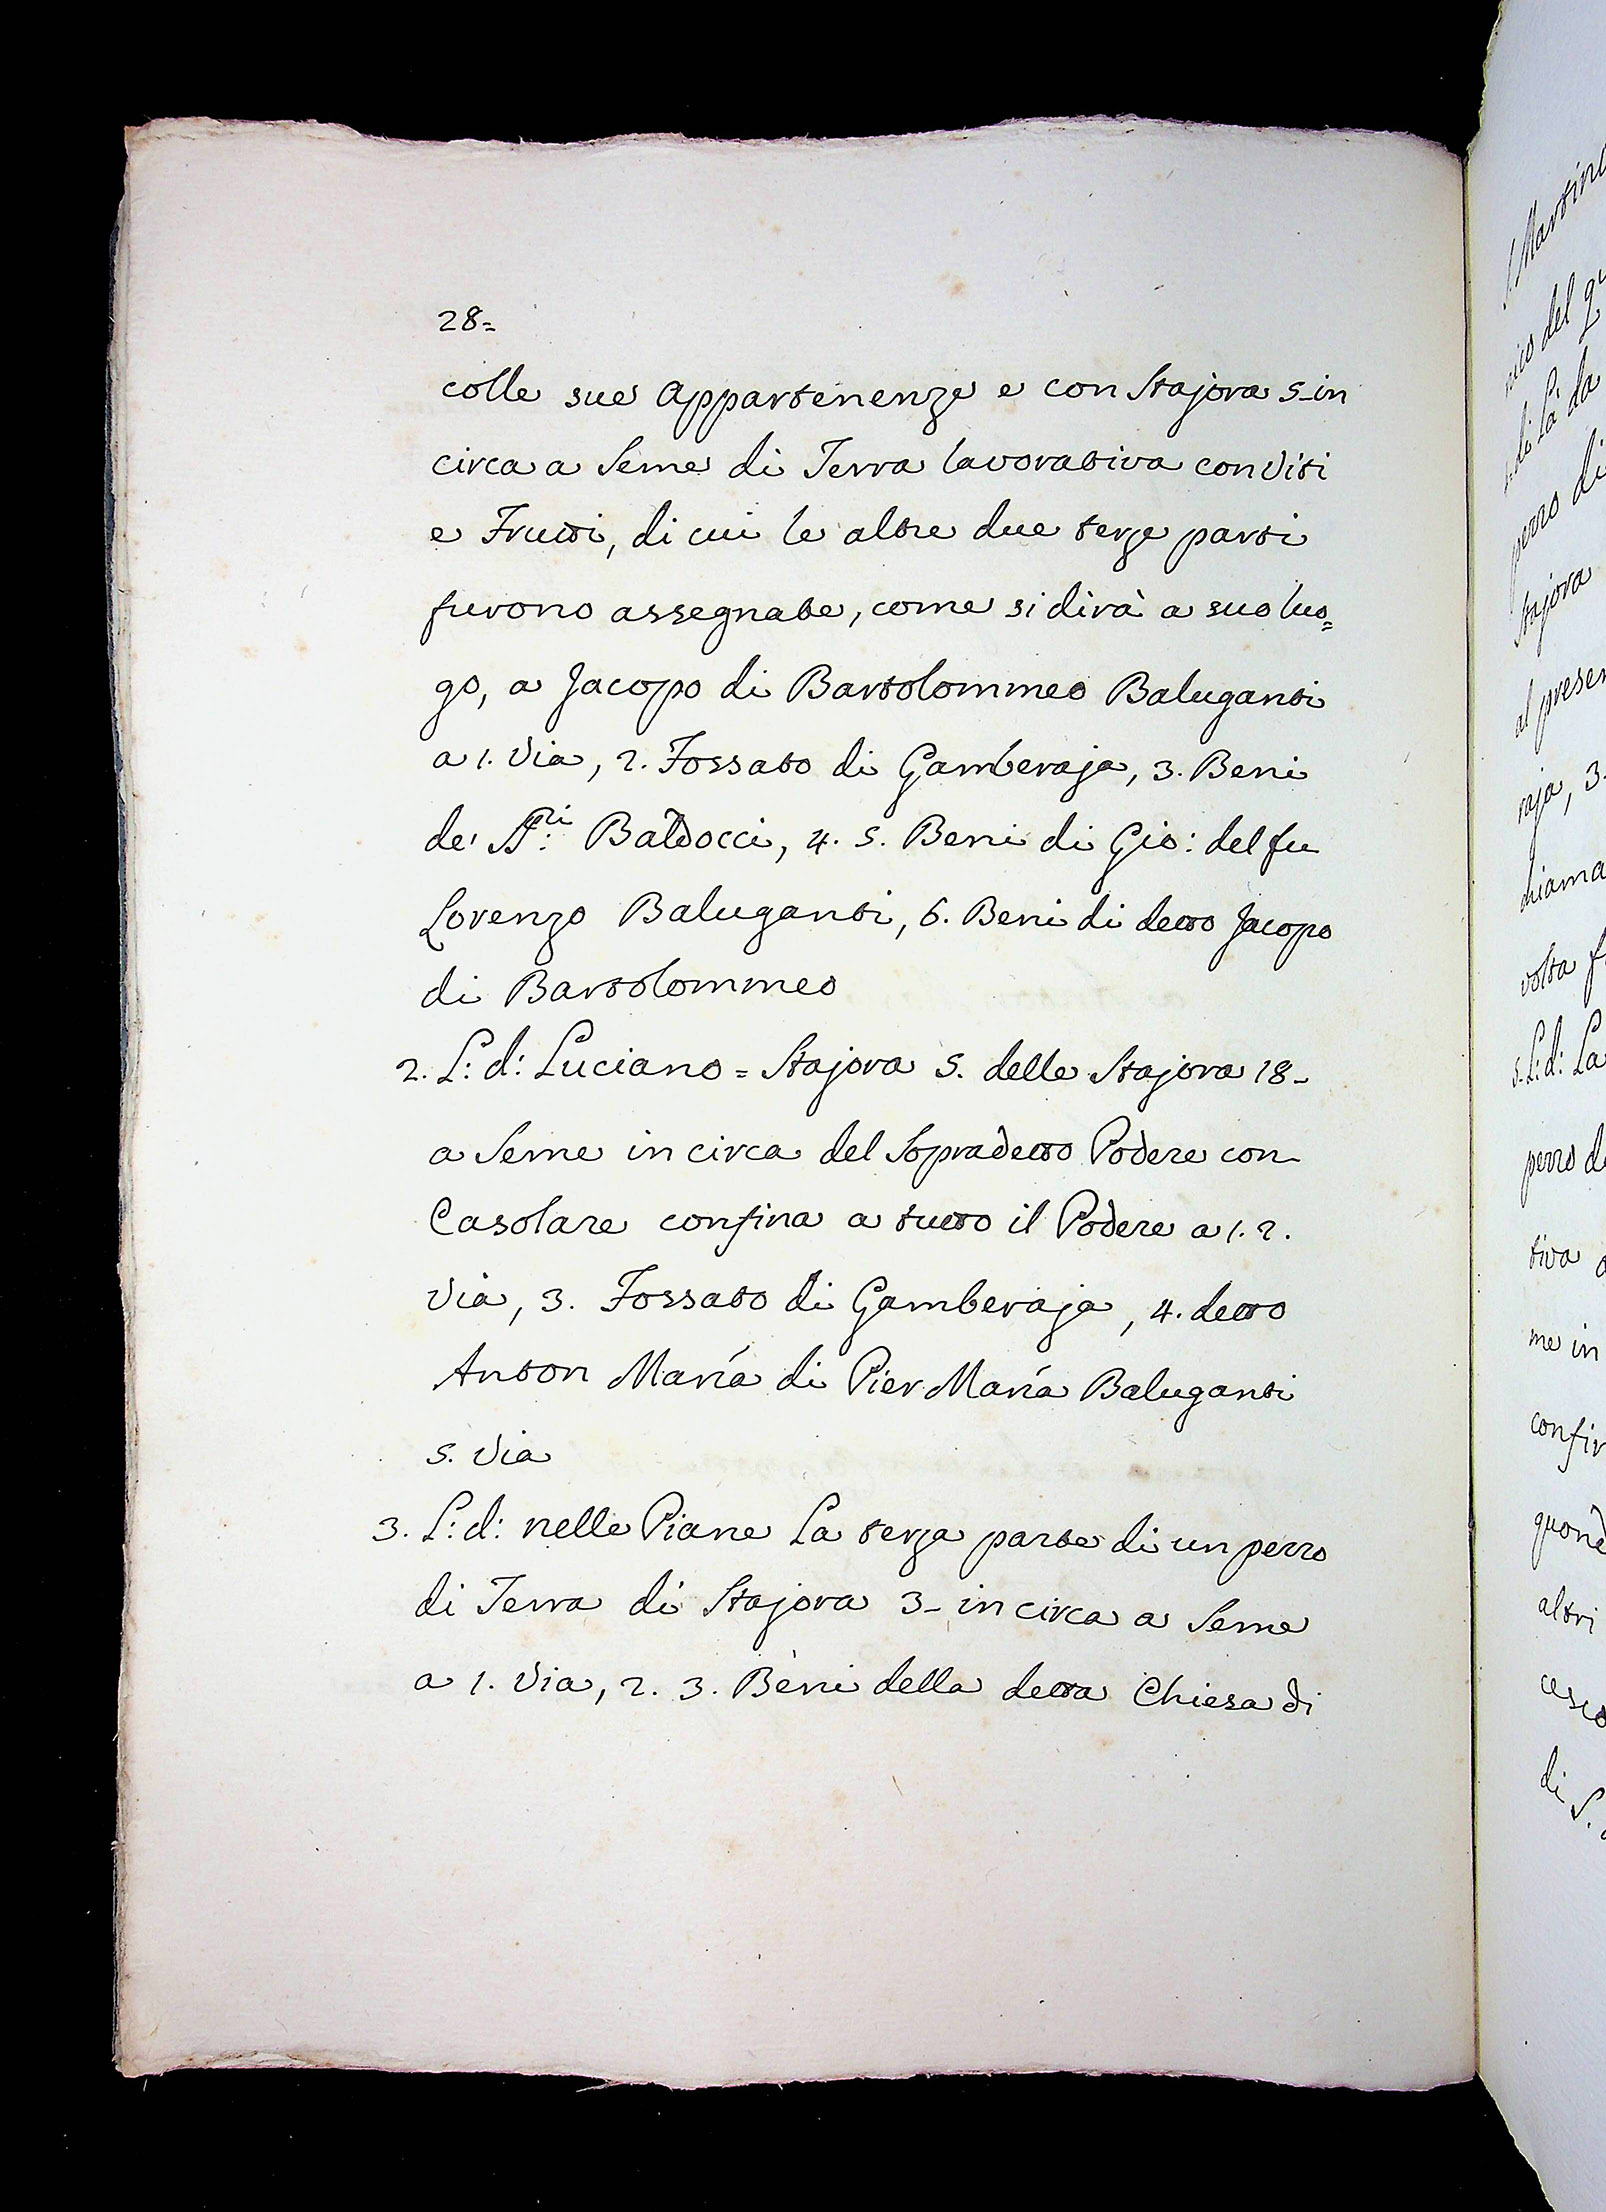 28=
colle sue Appartenenze e con Stajora 5- in
circa a Seme di Terra lavorativa con Viti
e Frutti, di cui le altre due terze parti
furono assegnate, come si dirà a suo luo=
go, a Jacopo di Bartolommeo Baluganti
a 1. Via, 2. Fossato di Gamberaja, 3. Beni
de' SS:ri Baldocci, 4. 5. Beni di Gio: del fu
Lorenzo Baluganti, 6. Beni di detto Jacopo
di Bartolommeo
2. L: d: Luciano = Stajora 5. delle Stajora 18-
a Seme in circa del Sopradetto Podere con
Casolare confina a tutto il Podere a 1. 2.
Via, 3. Fossato di Gamberaja, 4. detto
Anton María di Pier María Baluganti
5. Via
3. L: d: nelle Piane La terza parte di un pezzo
di Terra di Stajora 3- in circa a Seme
a 1. Via, 2. 3. Beni della detta Chiesa di
S. Martino
nico del qu
di Là da
pezzo di
Stajora
al presen
raja, 3.
chiama
volta f
5. L: d: La
pezzo d
tiva
me in
confin
quond
altri
cesco
di S.